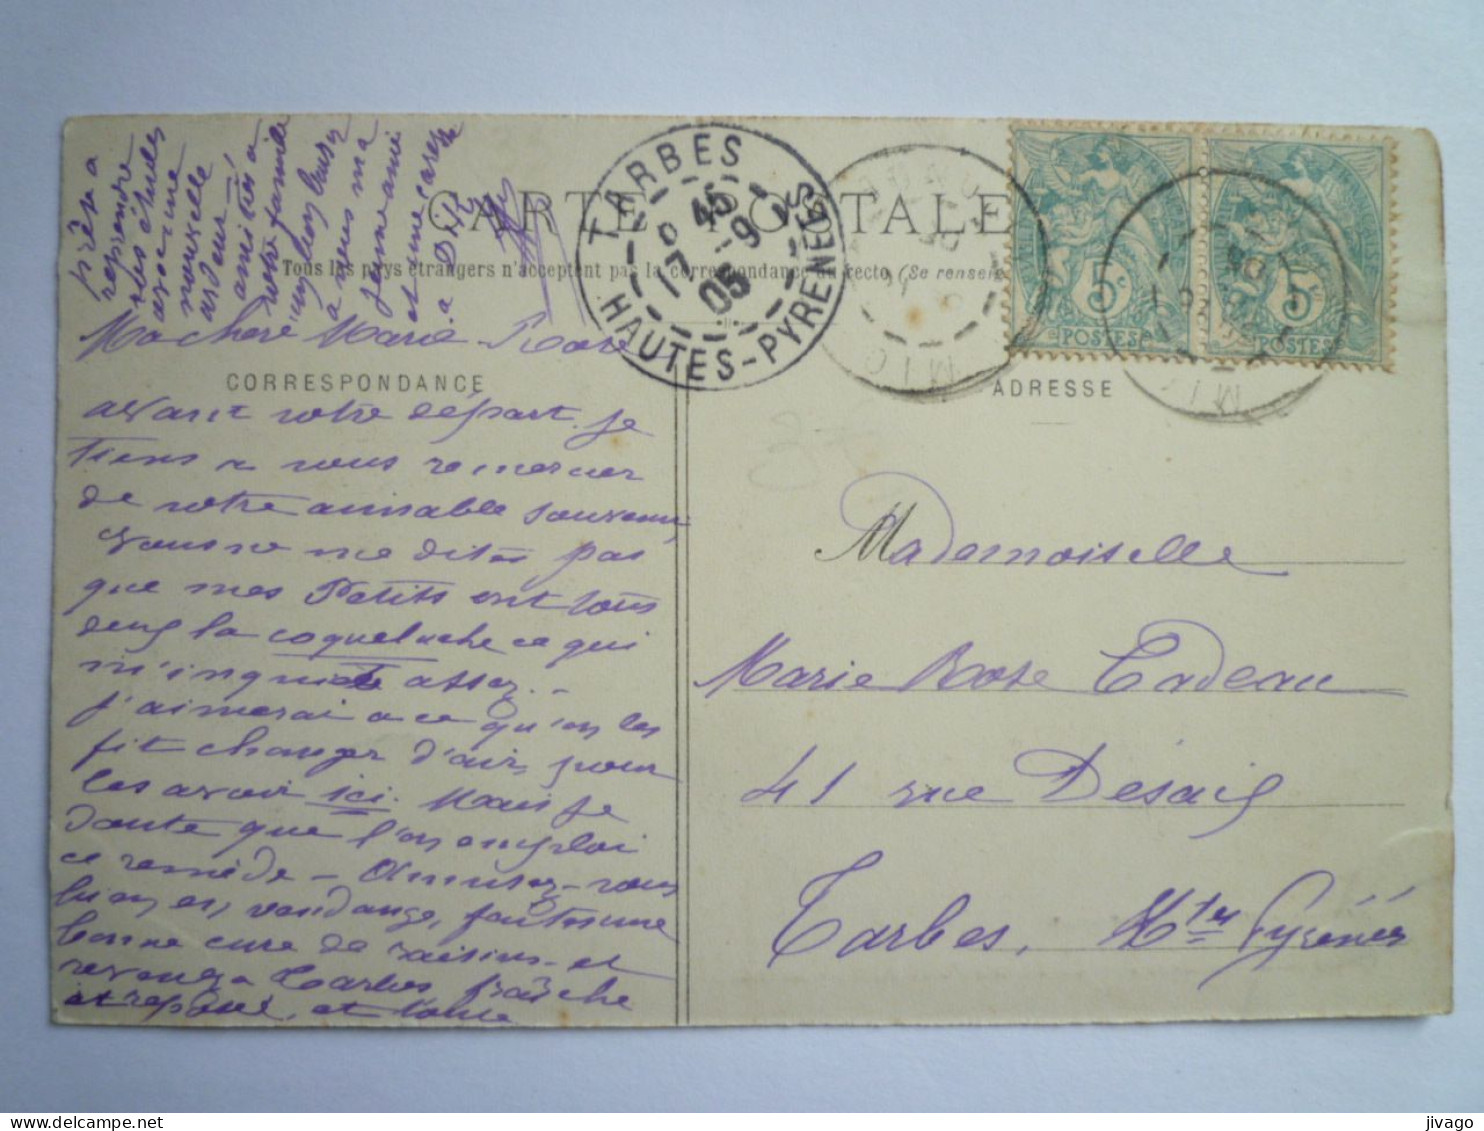 CARTE POSTALE
Tous les pays étrangers n'acceptent pas la correspondance au recto (Se renseig
CORRESPONDANCE
ADRESSE
TARBES
HAUTES-PYRENEES
17 -9
05
5c
POSTES
5c
POSTES
Ma chère Marie Rose
avant votre départ je
tiens à vous remercier
de votre aimable souvenir
Vous ne me dites pas
que mes Petits ont tous
deux la coqueluche ce qui
m'inquiète assez. -
J'aimerai à ce qu'on les
fit changer d'air, pour
les avoir ici. Mais je
doute que l'on emploi
ce remède - Amusez-vous
bien en vendange, faites une
bonne cure de raisins et
revenez à Tarbes fraîche
et reposée, et toute
prête à
reprendre
vos études
avec une
nouvelle
ardeur!
amitiés à
votre famille
baiser
à vous ma
jeune amie
et une caresse
à
Mademoiselle
Marie Rose Cadeau
41 rue Desaix
Tarbes, Htes Pyrénées
jivago